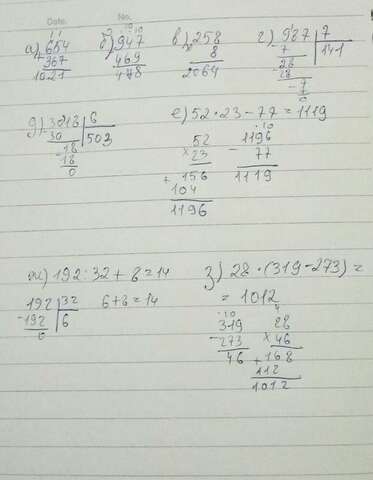 Date. No.
а) + 654
367
1021
б) - 947
469
478
в) × 258
8
2064
г) 987 | 7
- 7 141
28
- 28
- 7
7
0
д) 3018 | 6
- 30 503
- 18
18
0
е) 52 · 23 - 77 = 1119
× 52
23
+ 156
104
1196
- 1196
77
1119
ж) 192 : 32 + 8 = 14
192 | 32
- 192 6
0
6 + 8 = 14
з) 28 · (319 - 273) =
= 1012
- 319
273
46
× 28
46
+ 168
112
1012